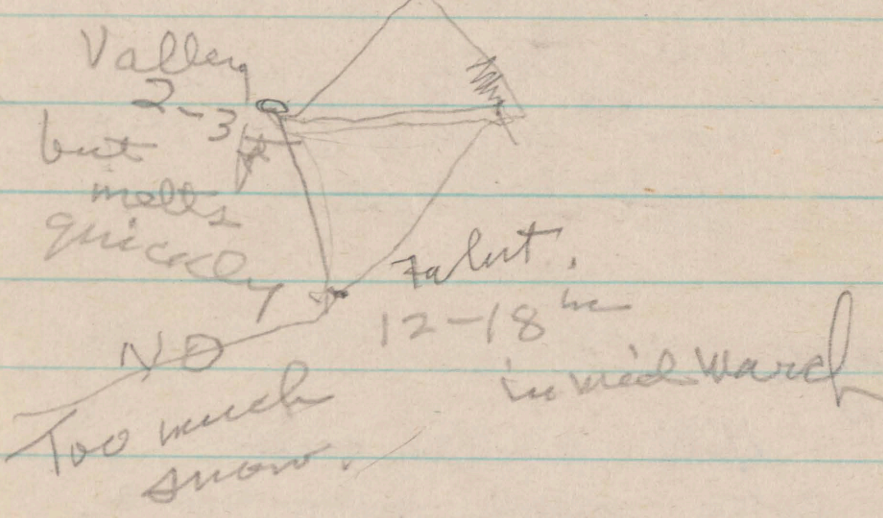 Valley
2-3 ft
but
melts
quickly
12-18 in
in mid March
NO
Too much
snow.